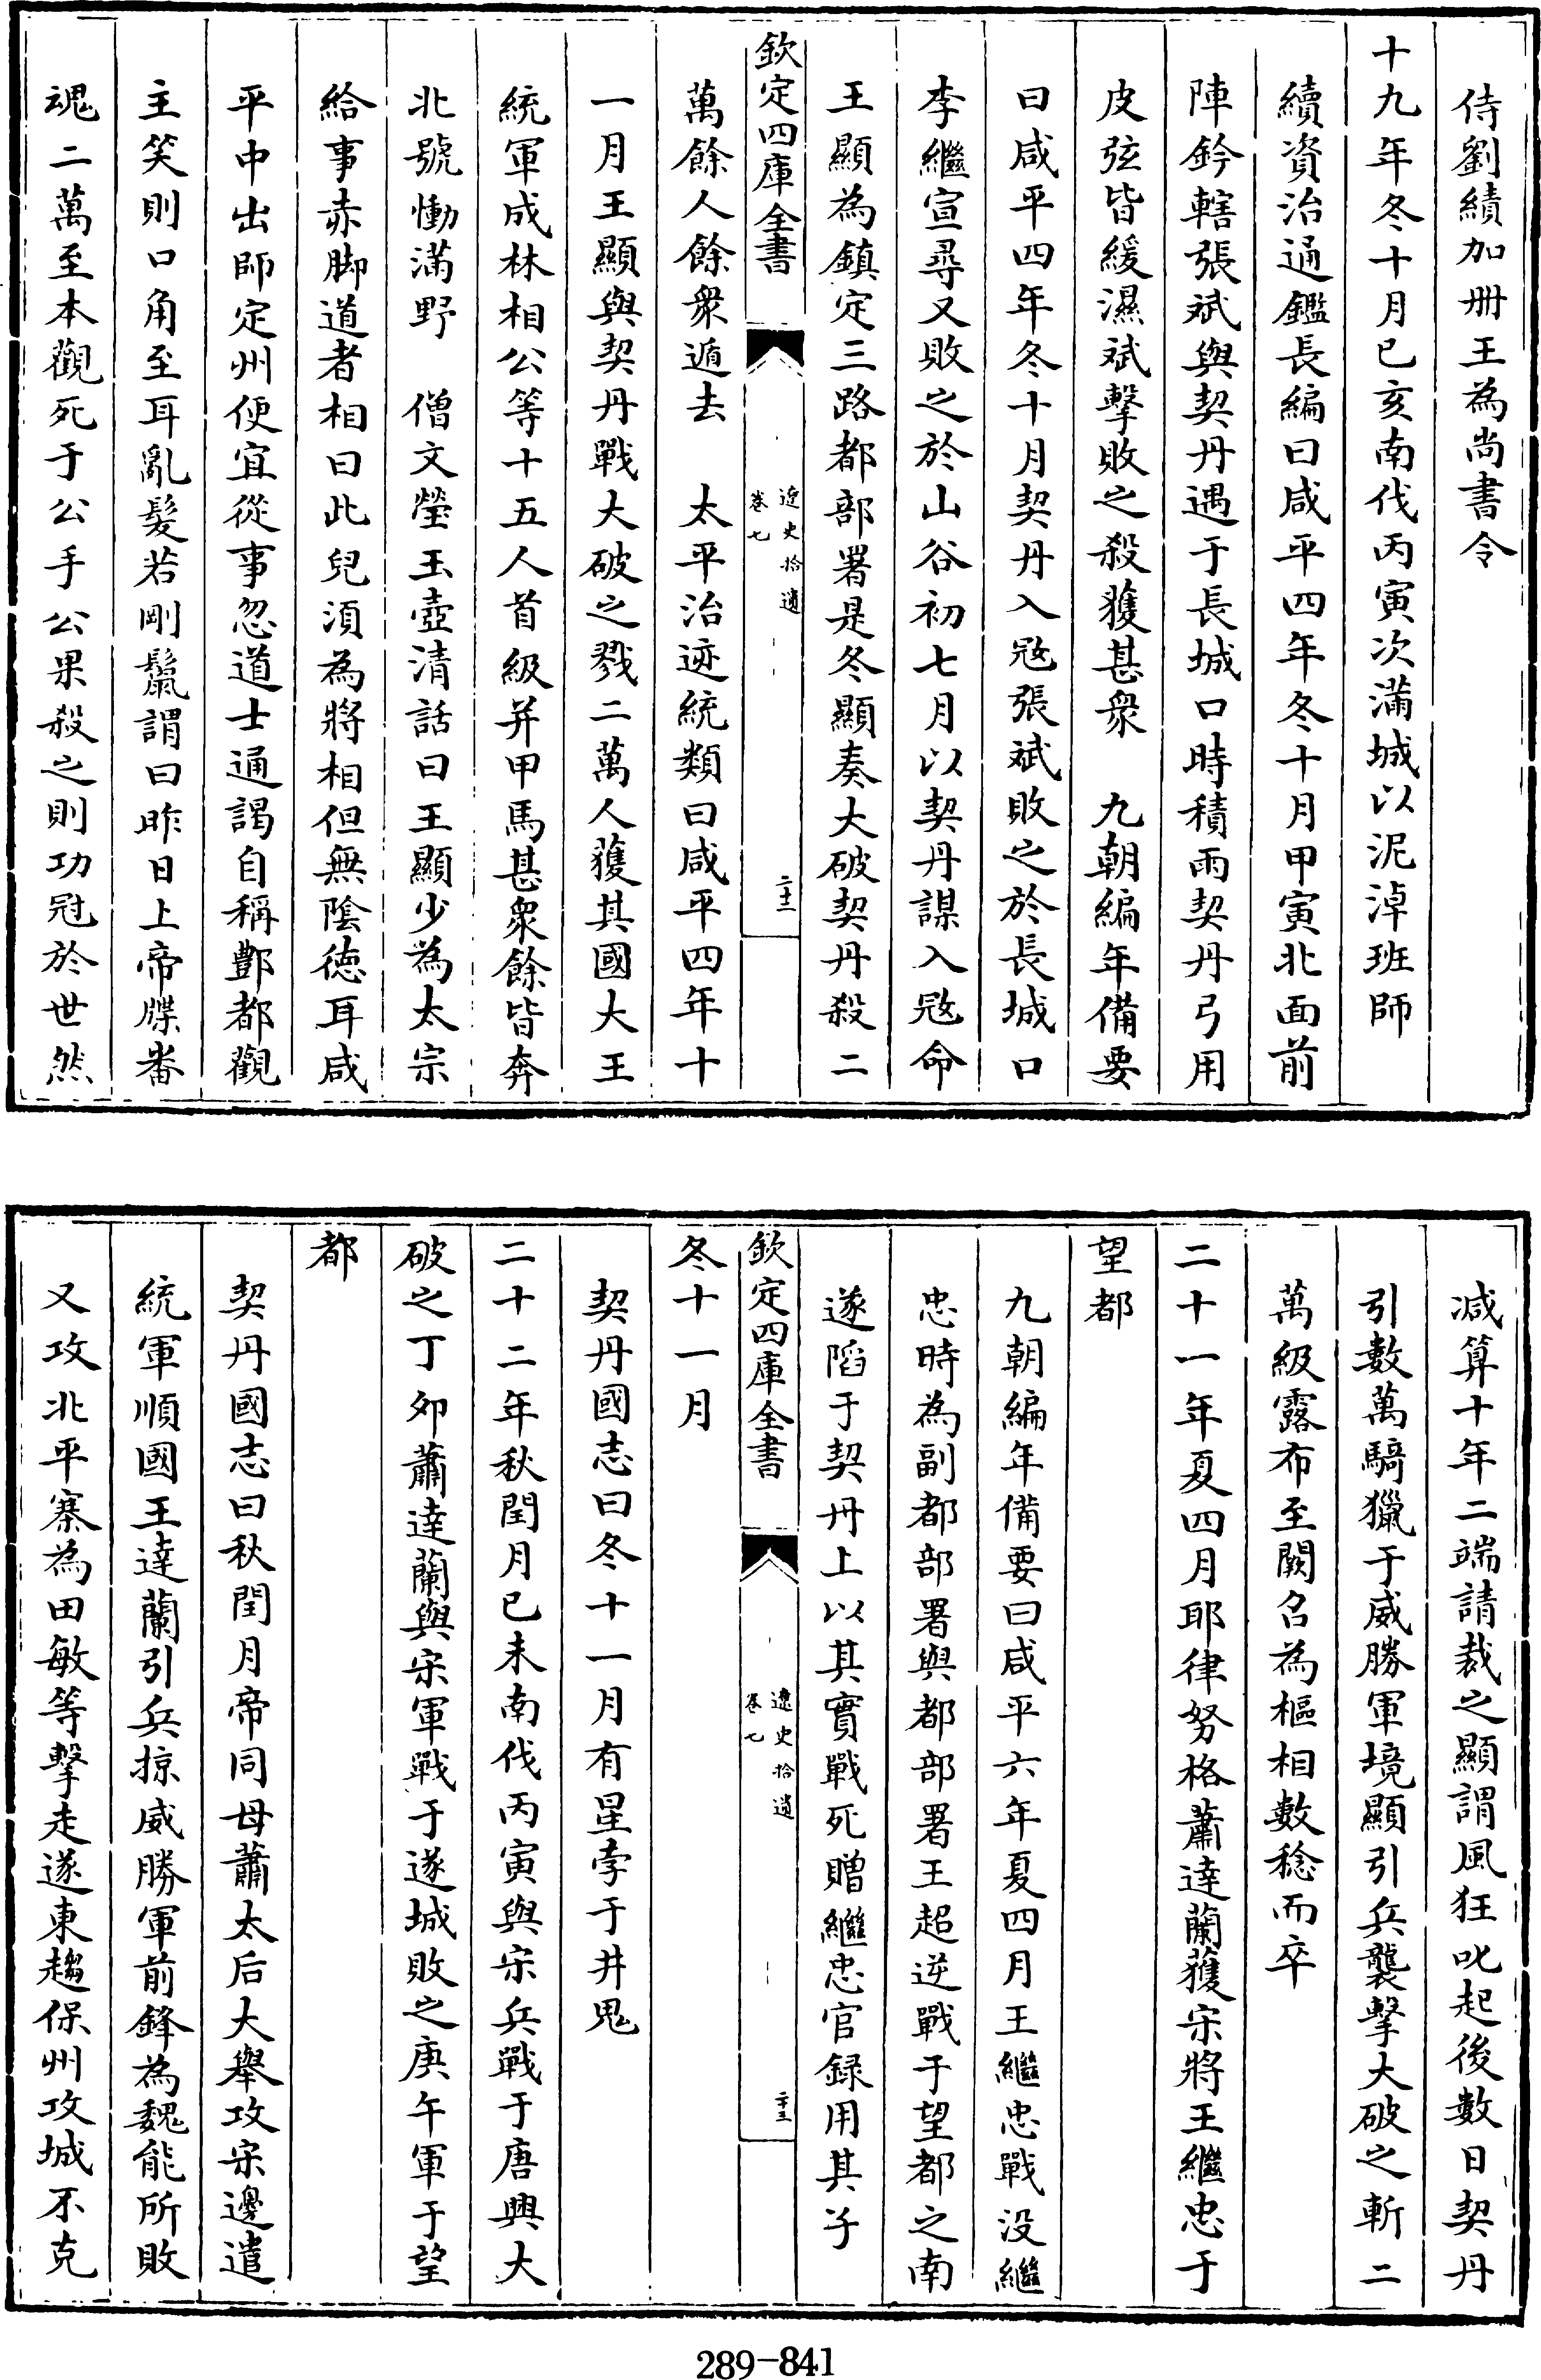 侍劉績加册王為尚書令
十九年冬十月已亥南伐丙寅次滿城以泥淖班師
續資治通鑑長編曰咸平四年冬十月甲寅北面前
陣鈐轄張斌與契丹遇于長城口時積雨契丹弓用
皮弦皆緩濕斌擊敗之殺獲甚衆　九朝編年備要
曰咸平四年冬十月契丹入冦張斌敗之於長城口
李繼宣尋又敗之於山谷初七月以契丹謀入冦命
王顯為鎮定三路都部署是冬顯奏大破契丹殺二
欽定四庫全書
遼史拾遺
卷七
二十二
萬餘人餘衆遁去　太平治迹統類曰咸平四年十
一月王顯與契丹戰大破之戮二萬人獲其國大王
統軍成林相公等十五人首級并甲馬甚衆餘皆奔
北號慟滿野　僧文瑩玉壺清話曰王顯少為太宗
給事赤脚道者相曰此兒須為將相但無隂德耳咸
平中出師定州便宜從事忽道士通謁自稱酆都觀
主笑則口角至耳亂髮若剛鬛謂曰昨日上帝牒番
魂二萬至本觀死于公手公果殺之則功冠於世然
减算十年二端請裁之顯謂風狂叱起後數日契丹
引數萬騎獵于威勝軍境顯引兵襲擊大破之斬二
萬級露布至闕召為樞相數稔而卒
二十一年夏四月耶律努格蕭達蘭獲宋將王繼忠于
望都
九朝編年備要曰咸平六年夏四月王繼忠戰没繼
忠時為副都部署與都部署王超逆戰于望都之南
遂䧟于契丹上以其實戰死贈繼忠官録用其子
欽定四庫全書
遼史拾遺
卷七
二十三
冬十一月
契丹國志曰冬十一月有星孛于井鬼
二十二年秋閏月已未南伐丙寅與宋兵戰于唐興大
破之丁夘蕭達蘭與宋軍戰于遂城敗之庚午軍于望
都
契丹國志曰秋閏月帝同母蕭太后大舉攻宋邊遣
統軍順國王達蘭引兵掠威勝軍前鋒為魏能所敗
又攻北平寨為田敏等擊走遂東趨保州攻城不克
289-841